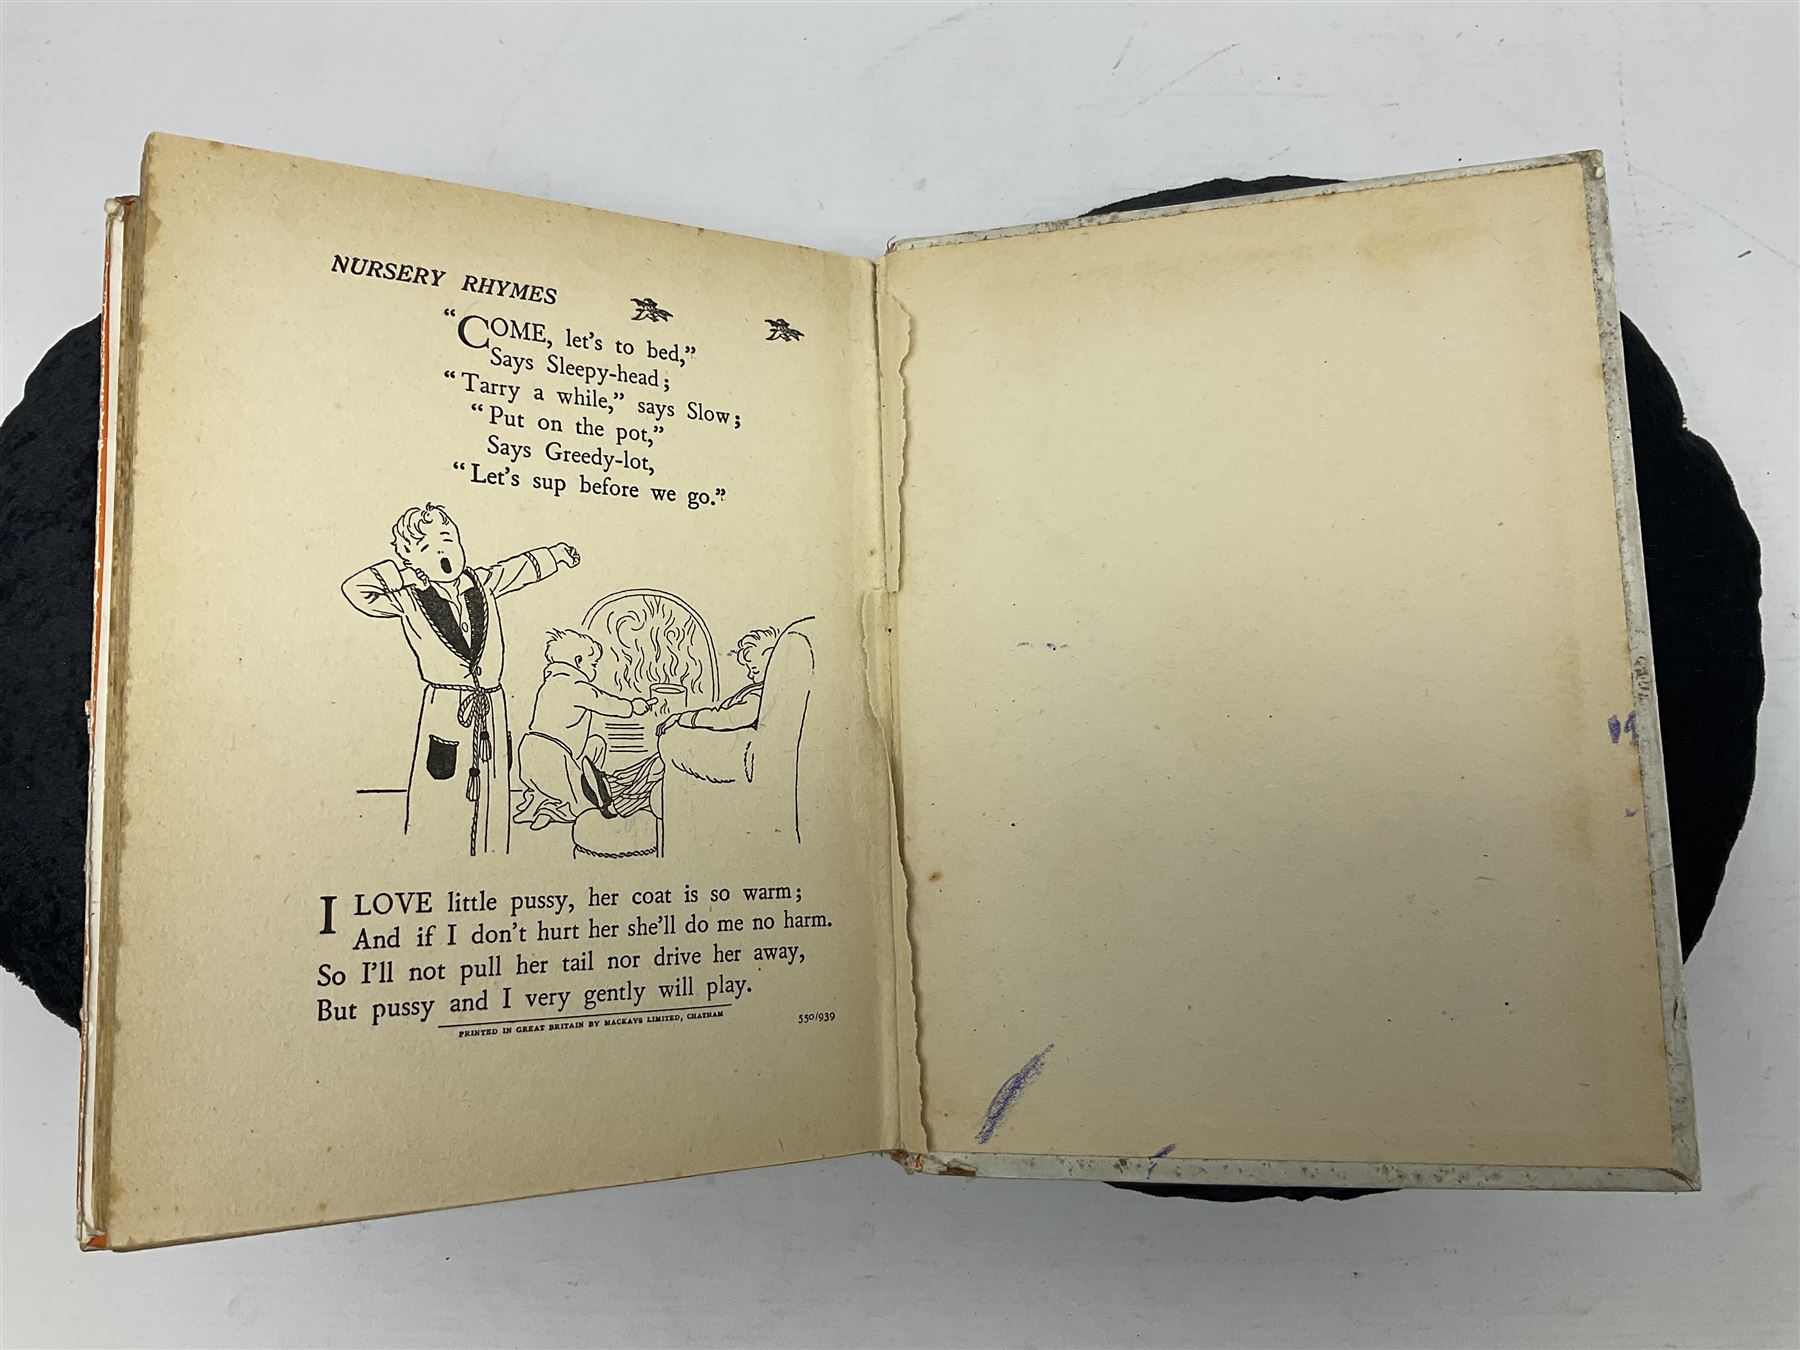 NURSERY RHYMES
“COME, let's to bed,”
Says Sleepy-head;
“Tarry a while,” says Slow;
“Put on the pot,”
Says Greedy-lot,
“Let's sup before we go.”
I LOVE little pussy, her coat is so warm;
And if I don't hurt her she'll do me no harm.
So I'll not pull her tail nor drive her away,
But pussy and I very gently will play.
PRINTED IN GREAT BRITAIN BY MACKAYS LIMITED, CHATHAM
550/939